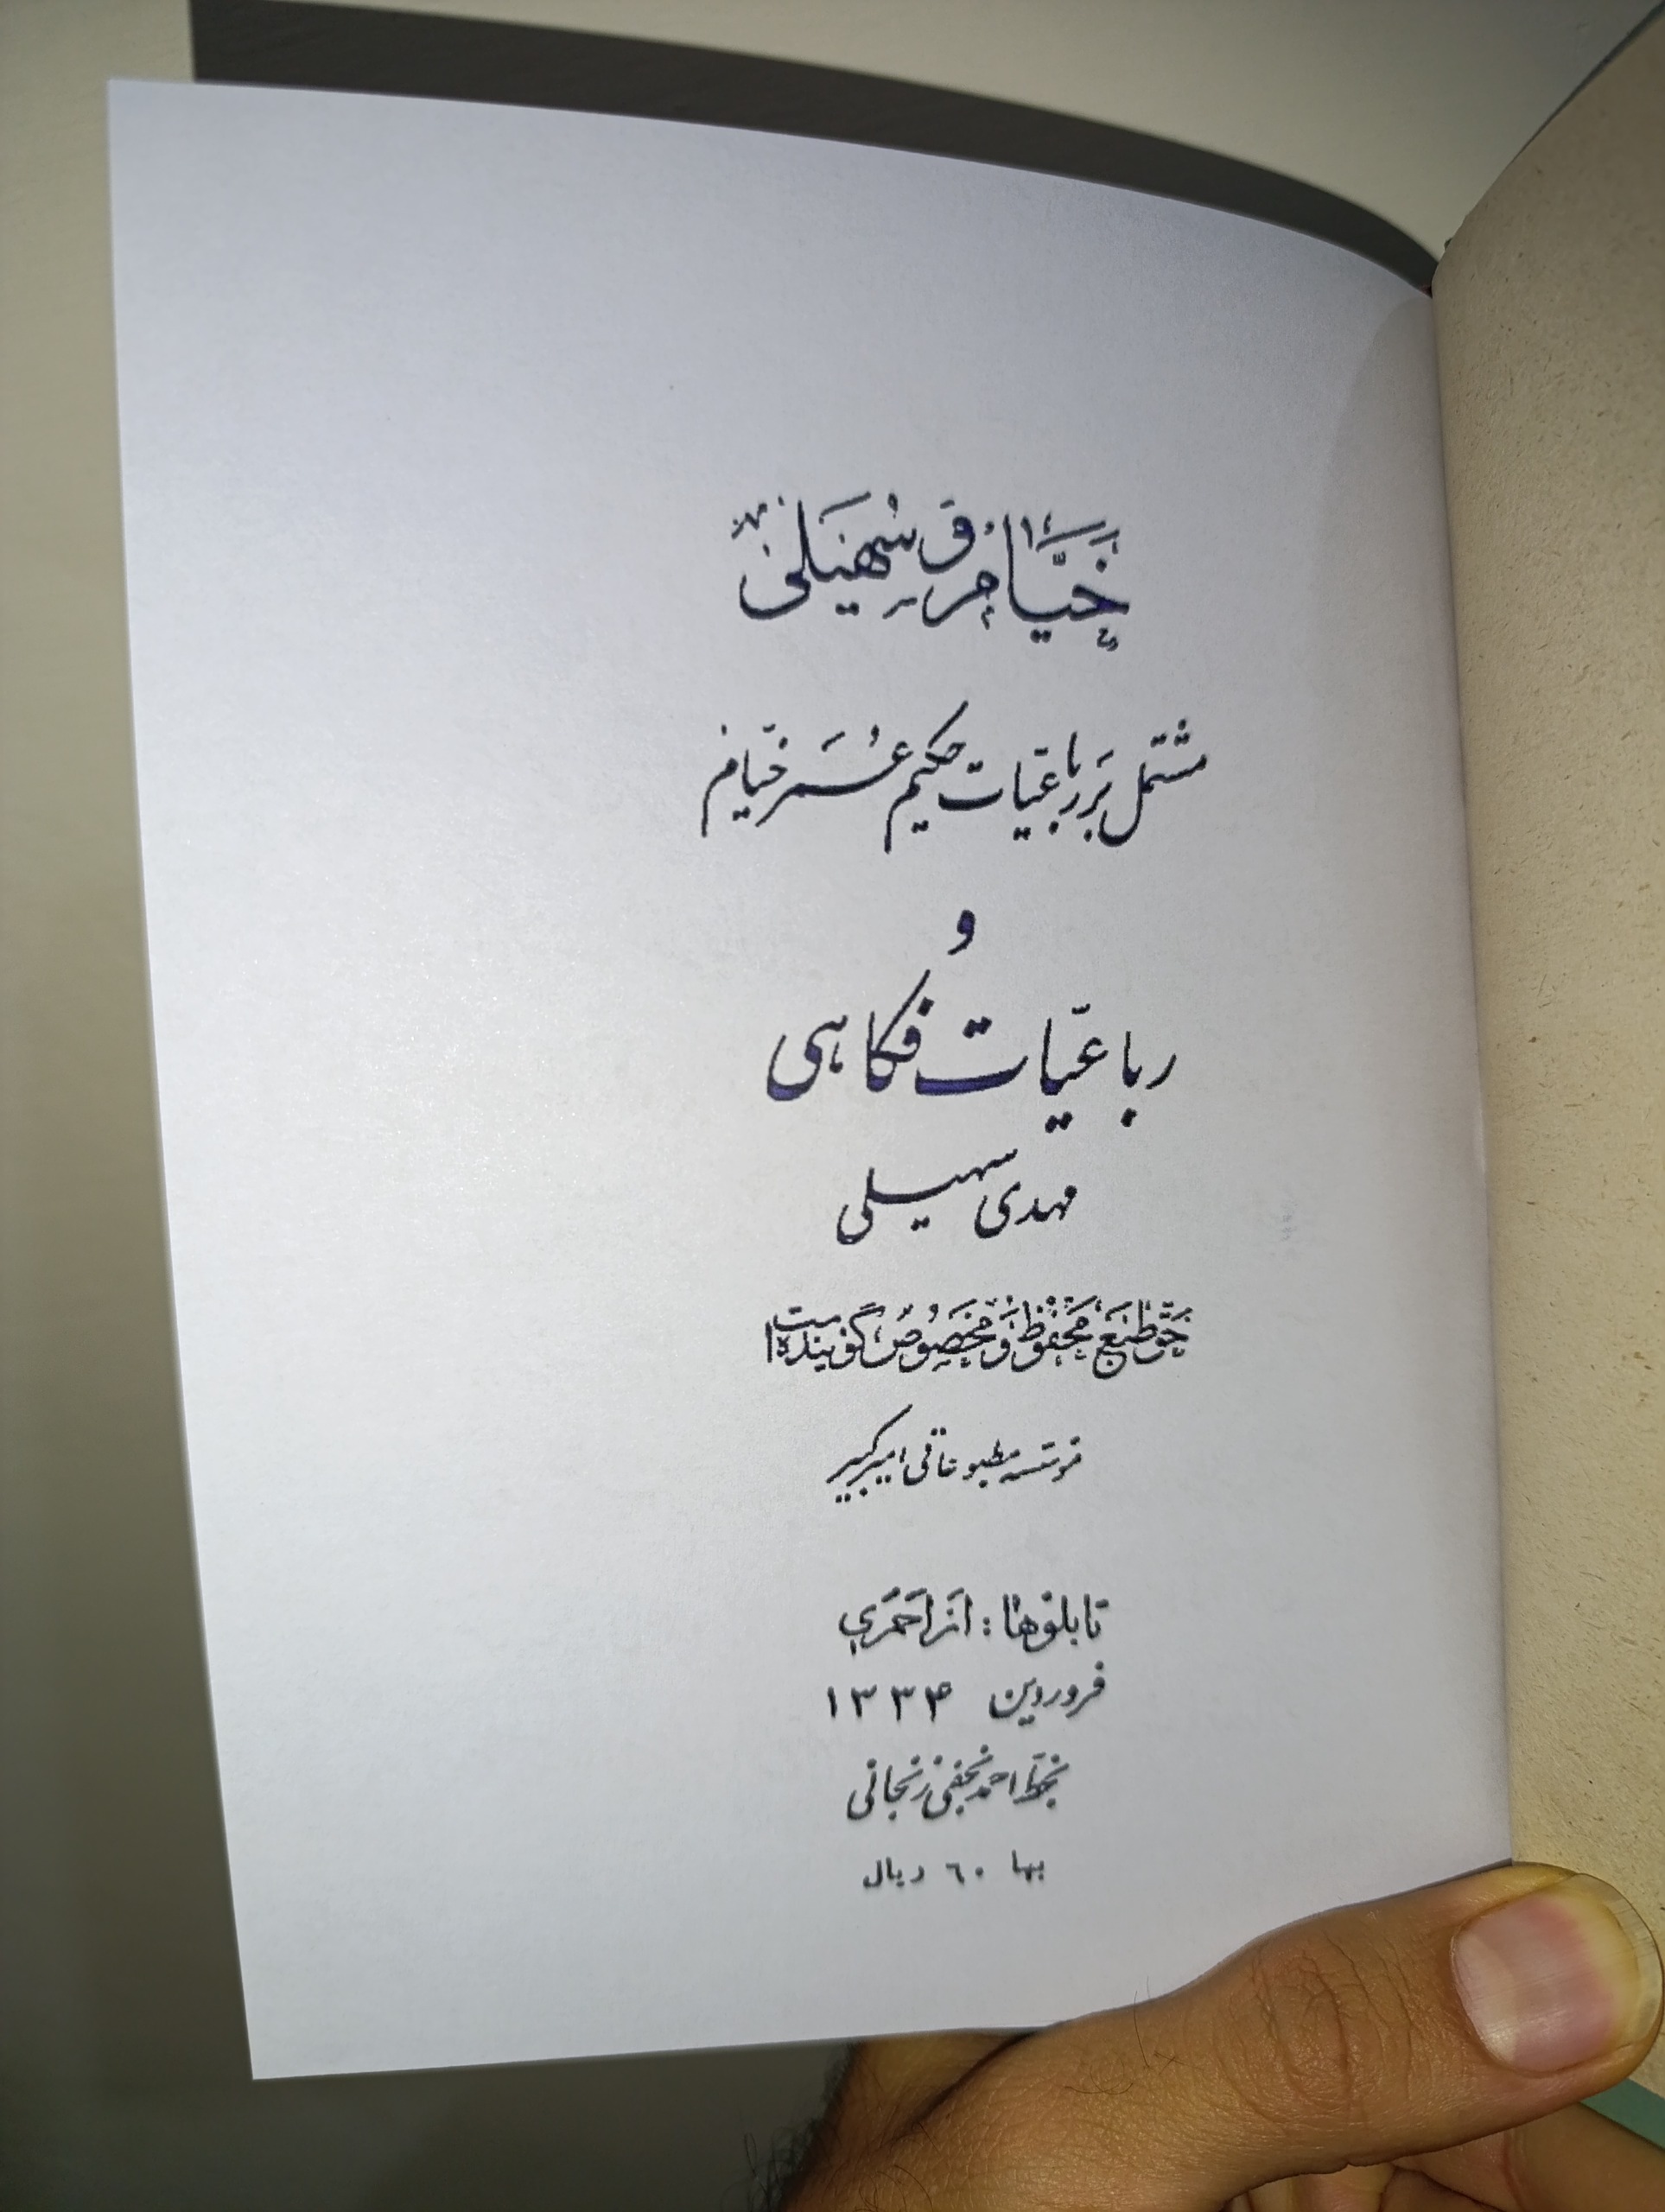 خیّام و سُهیلی
مشتمل بَر رباعیّات حکیم عُمَر خیّام
و
رباعیّات فکاهی
مهدی سهیلی
حَقّ طَبع مَحفُوظ وَ مَخصُوصِ گوینده است
مؤسسه مطبوعاتی امیرکبیر
تابلوها : اَز اَحمَدی
فروردین ۱۳۳۴
بخط احمد نجفی زنجانی
بها ٦٠ ریال